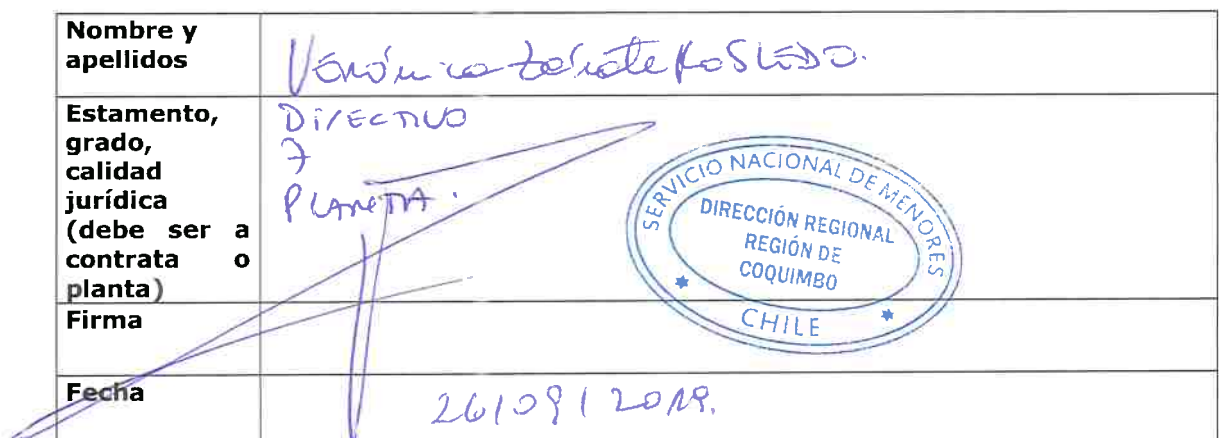 Nombre y
apellidos
Verónica Zárate Robledo.
Estamento,
grado,
calidad
jurídica
(debe ser a
contrata o
planta)
Directivo
7
Planta.
SERVICIO NACIONAL DE MENORES
DIRECCIÓN REGIONAL
REGIÓN DE
COQUIMBO
CHILE
Firma
Fecha
26/09/2019.